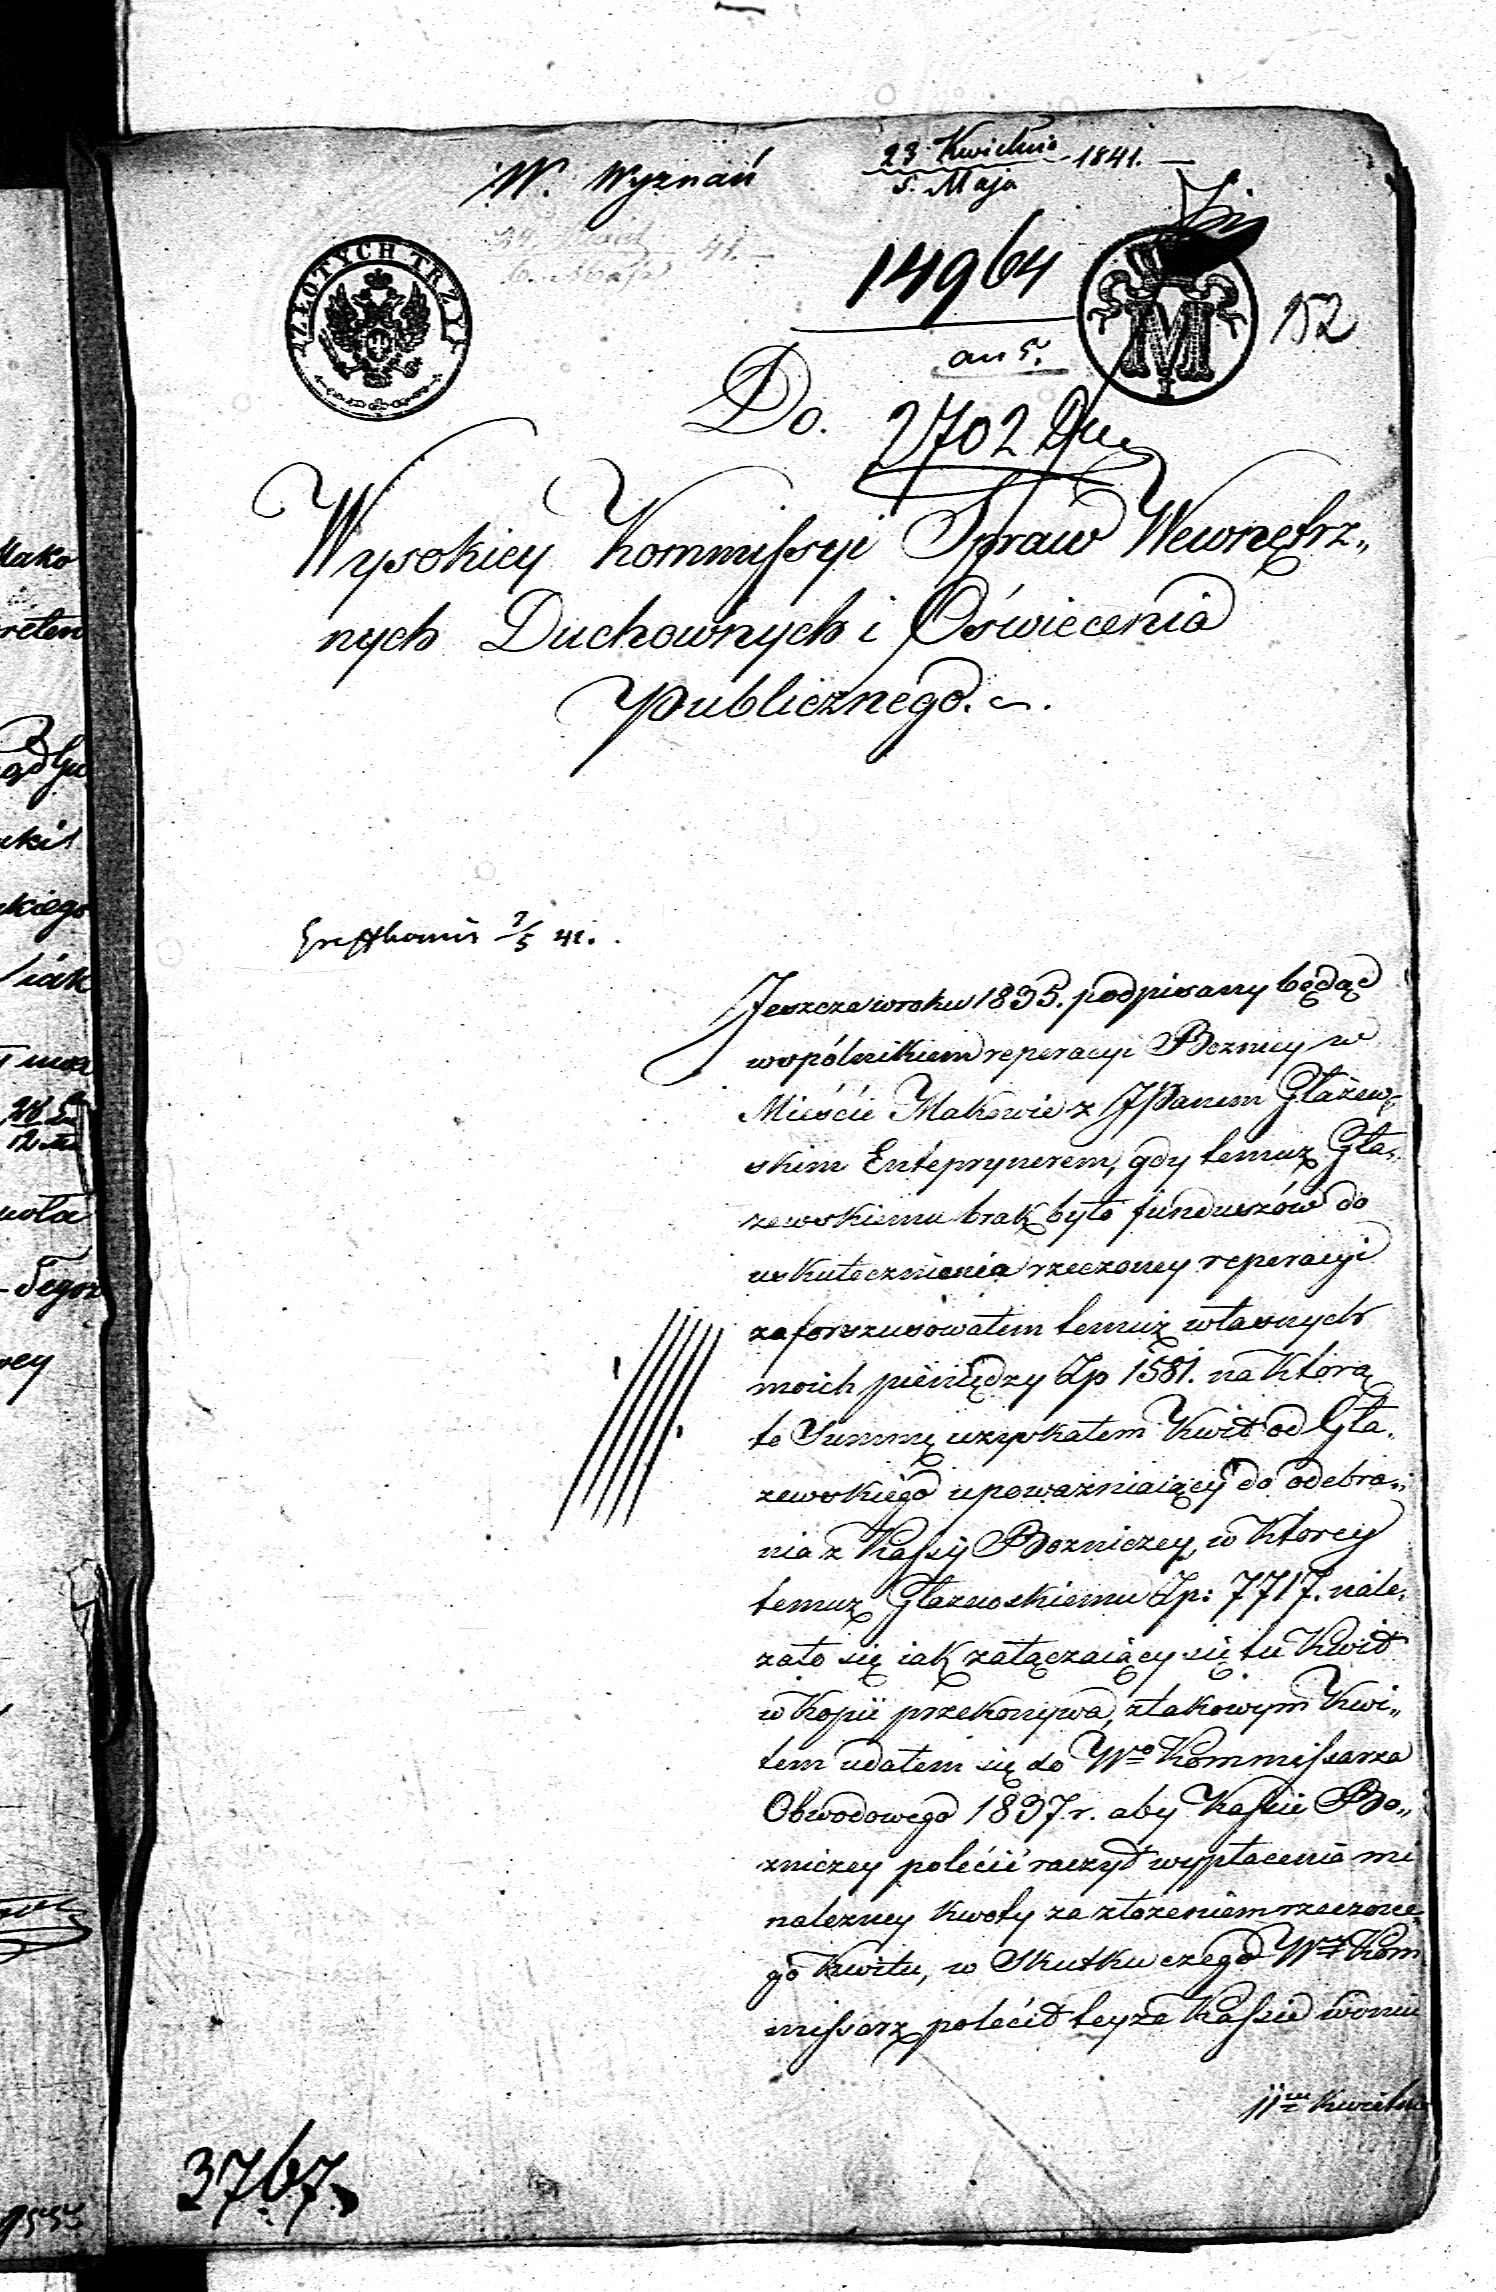 W. Wyznań
23 Kwietnia 1841.
5. Maja
41.
6. Maja
ZŁOTYCH TRZY
14964
152
an 5.
M
Do.
2702
Wysokiey Kommissyi Spraw Wewnętrz„
nych Duchownych i Oświecenia
Publicznego.
7/5 41.
Jeszcze w roku 1835. podpisany będąc
wspólnikiem reperacyi Boznicy w
Mieście Makowie z JPanem Głażew„
skim Enteprynerem, gdy temuz Gła„
zewskiemu brak było funduszów do
uskutecznienia rzeczoney reperacyi
zaforszusowałem temuż własnych
moich pieniędzy Zp 1581. na którą
te Summę uzyskałem Kwit od Gła„
zewskiego upoważniaiący do odebra„
nia z Kassy Bozniczey, w którey
temuz Głazewskiemu Zp: 7717. nale„
zało się iak załączaiący się tu Kwit
w Kopii przekonywa, z takowym Kwi„
tem udałem się do Wo Kommissarza
Obwodowego 1837. r. aby Kassie Bo„
zniczey polécić raczył wypłacenia mi
nalezney kwoty za złozeniem rzeczone„
go Kwitu, w Skutku czego Wy Kom
missarz polécił teyze Kassie w dniu
11 Kwietnia
3767.
Mako
kiego
Tegoz